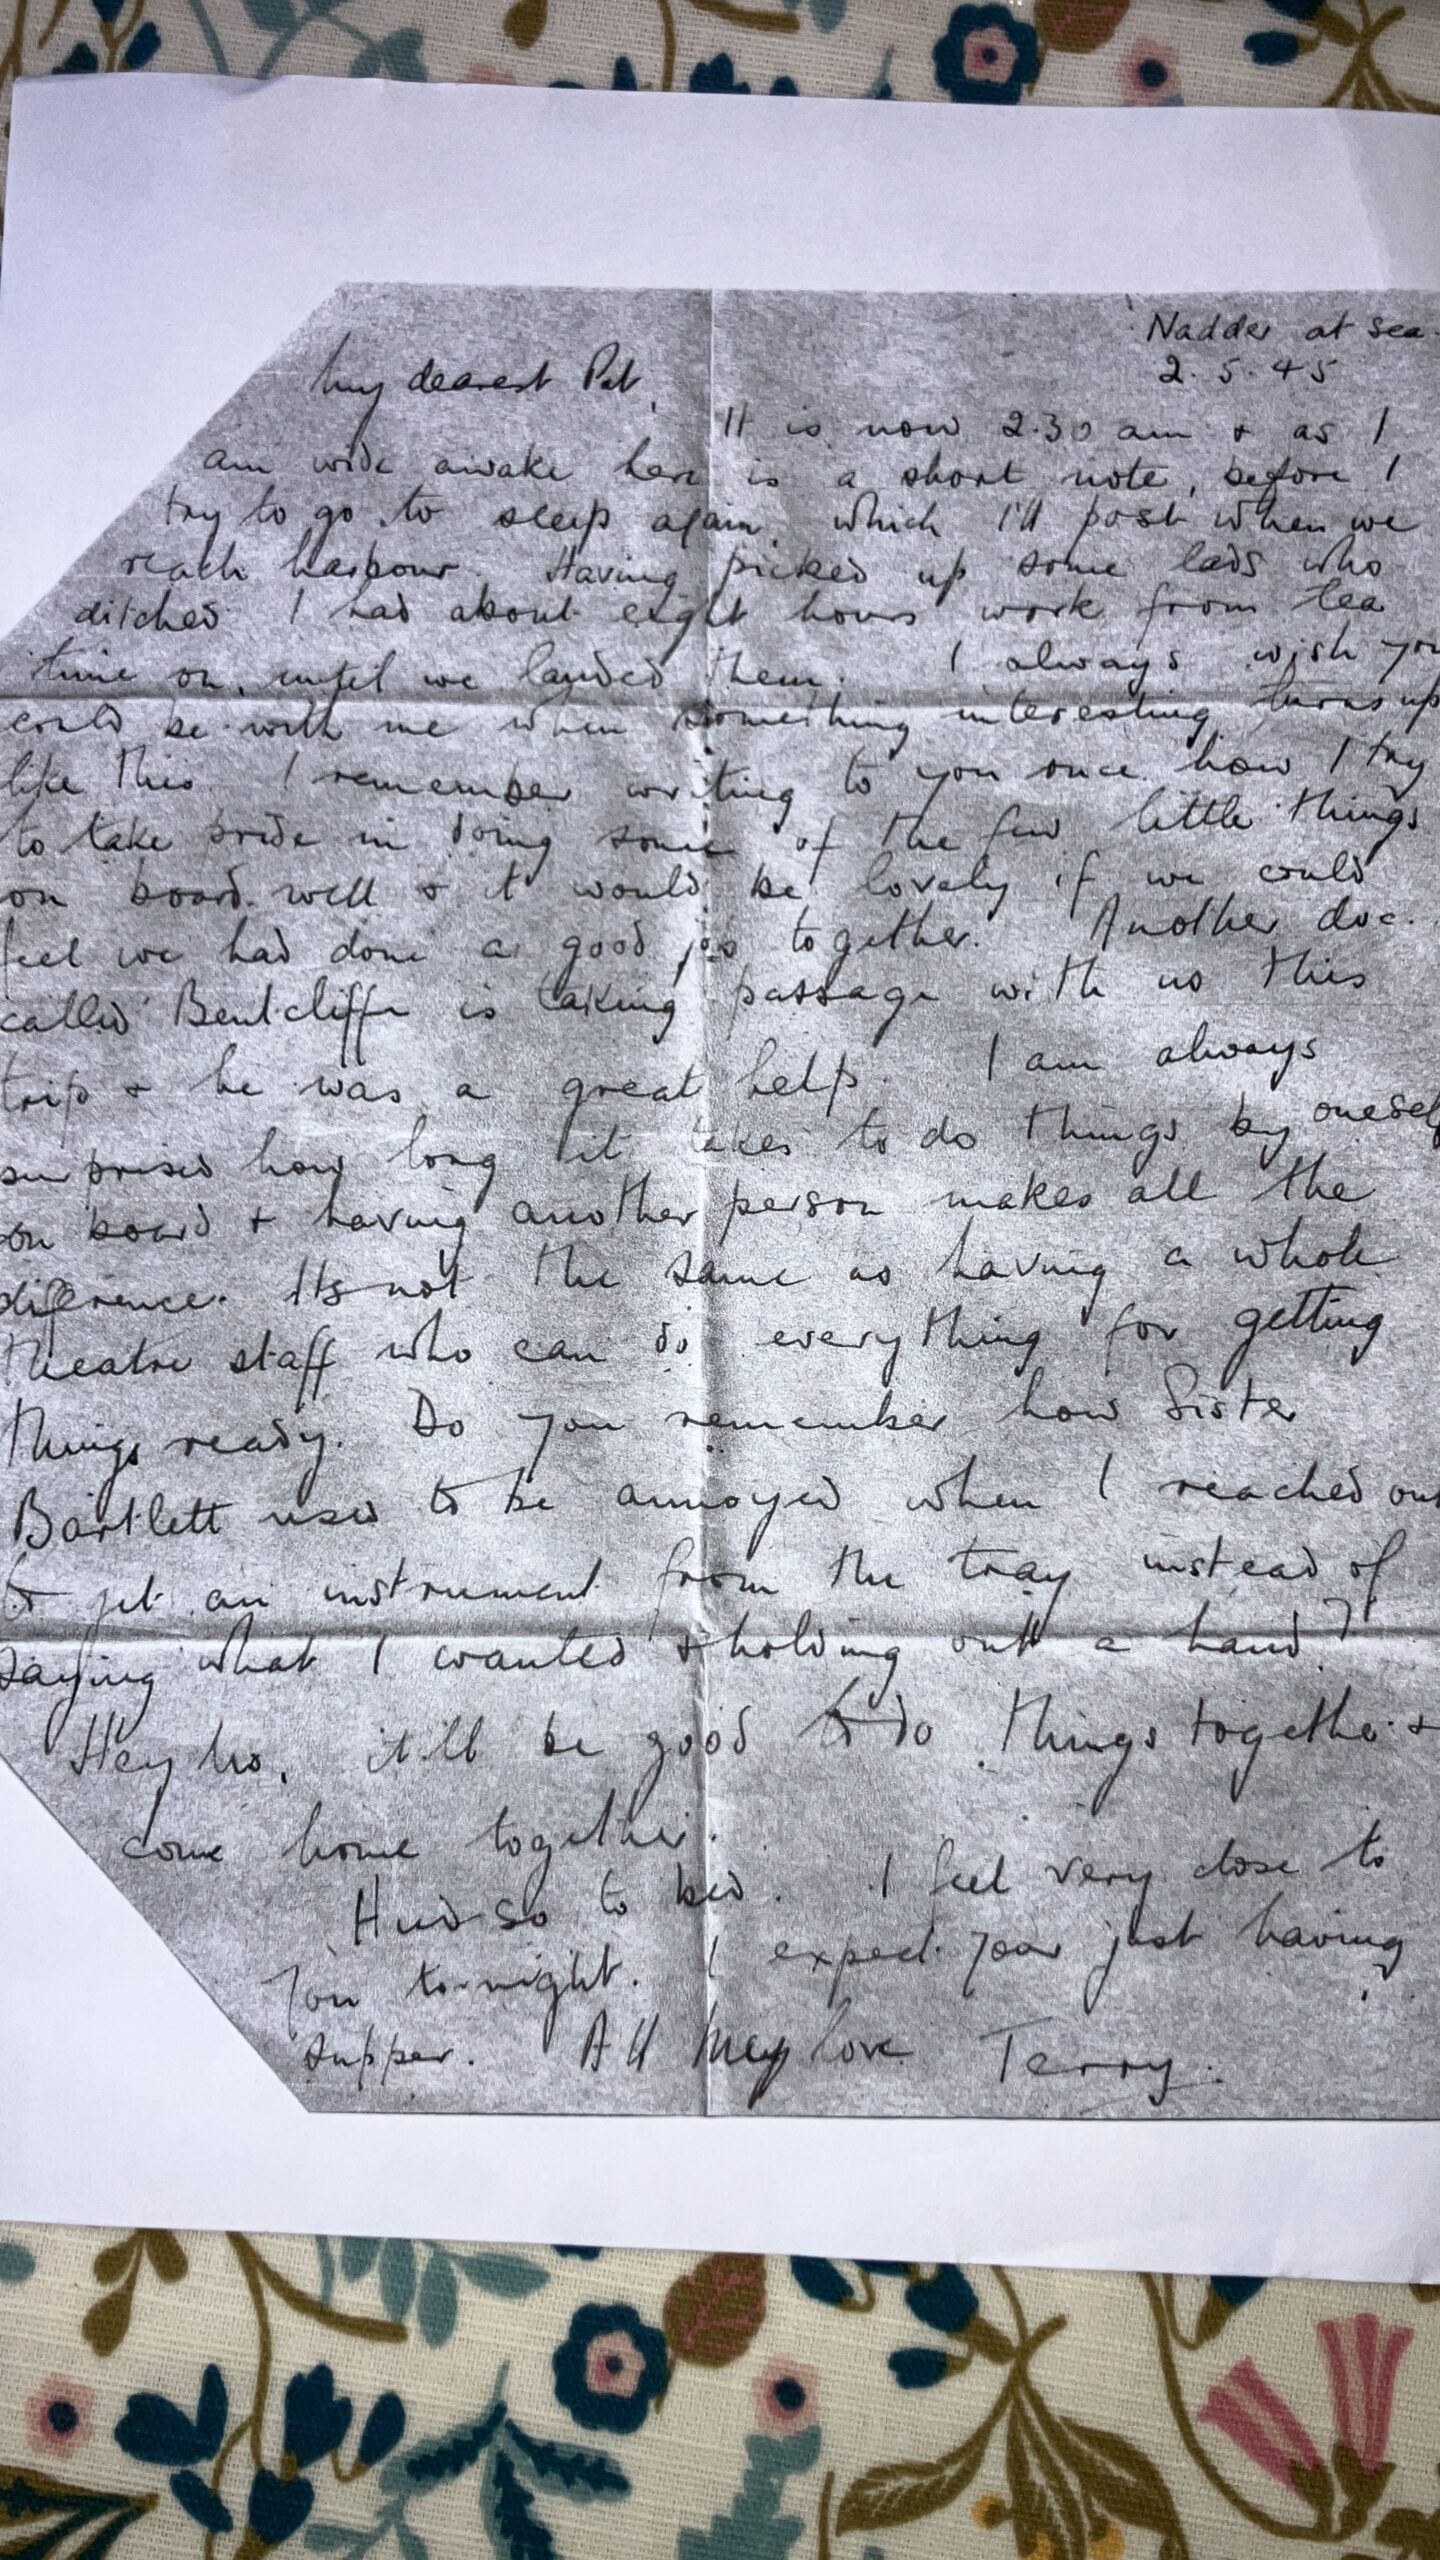 Nadder at sea.
2.5.45
My dearest Pat,
It is now 2.30 am & as I
am wide awake here is a short note, before I
try to go to sleep again, which I'll post when we
reach harbour. Having picked up some lads who
ditched I had about eight hours work from tea
time on, until we landed them. I always wish you
could be with me when something interesting turns up
like this. I remember writing to you once how I try
to take pride in doing some of the few little things
on board well & it would be lovely if we could
feel we had done a good job together. Another doc.
called Bentcliffe is taking passage with us this
trip & he was a great help. I am always
surprised how long it takes to do things by oneself
on board & having another person makes all the
difference. Its not the same as having a whole
theatre staff who can do everything for getting
things ready. Do you remember how Sister
Bartlett used to be annoyed when I reached out
to get an instrument from the tray instead of
saying what I wanted & holding out a hand?
Hey ho, it'll be good to do things together &
come home together.
And so to bed. I feel very close to
you to-night. I expect your just having
supper. All my love Terry.